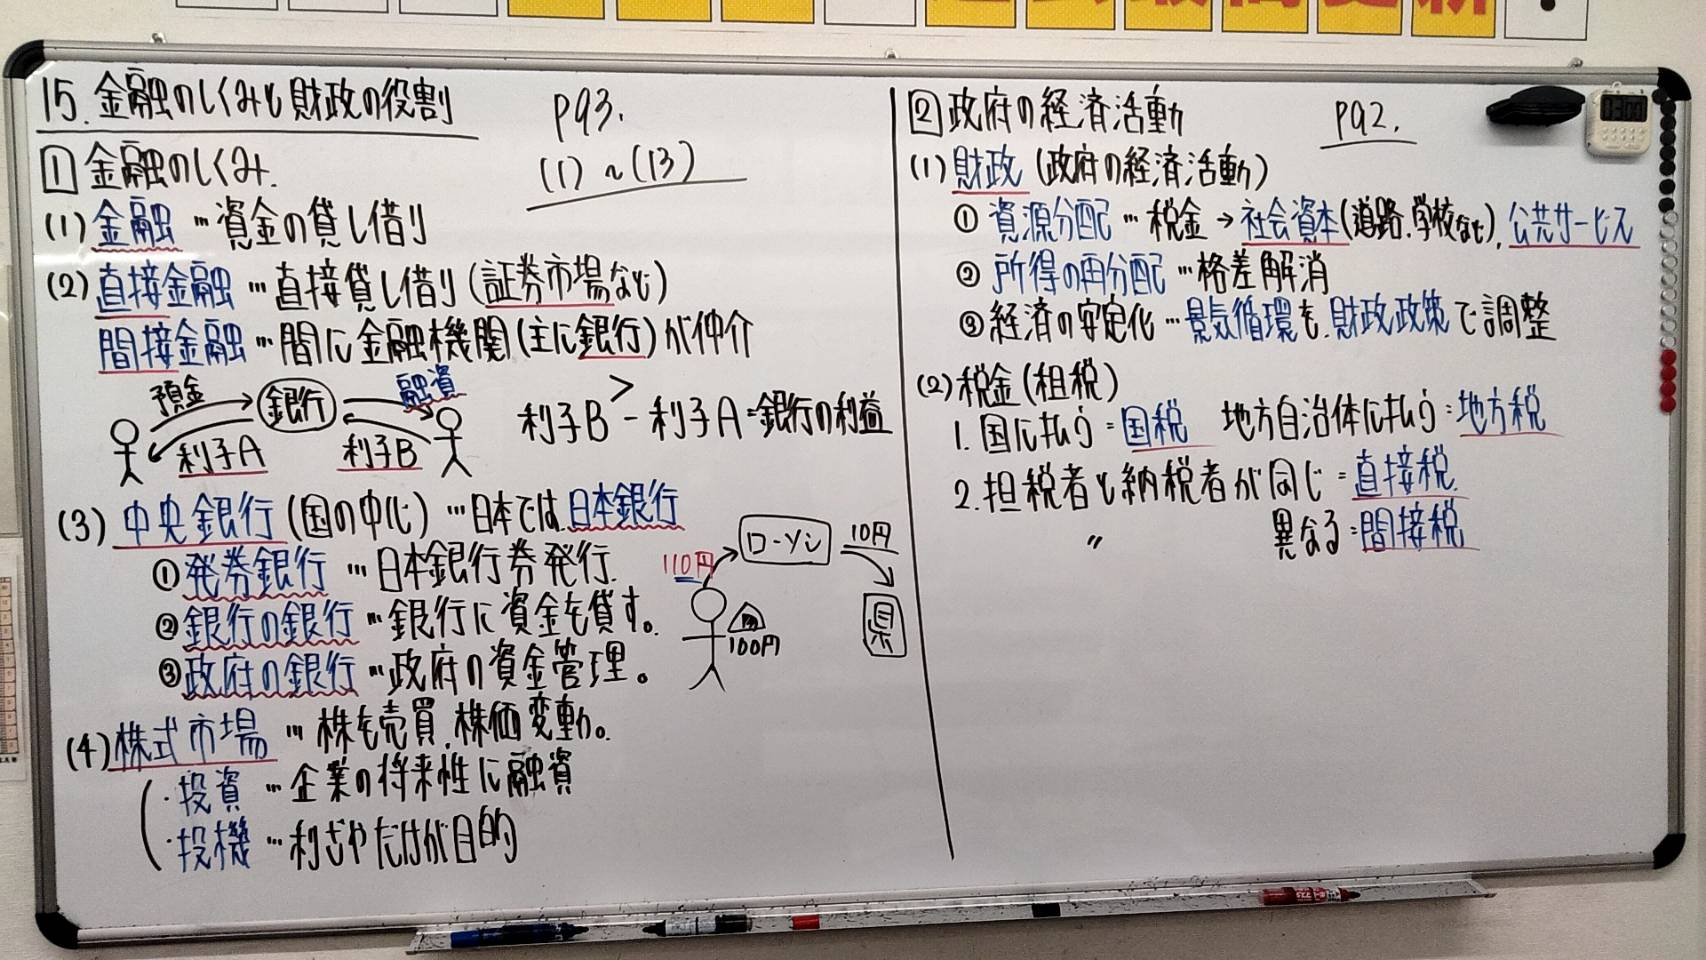 15.金融のしくみと財政の役割
P93.
(1)～(13)
1 金融のしくみ.
(1)金融…資金の貸し借り
(2)直接金融…直接貸し借り(証券市場など)
間接金融…間に金融機関(主に銀行)が仲介
預金 銀行 融資
利子A 利子B
>
利子B - 利子A=銀行の利益
(3)中央銀行(国の中心)…日本では日本銀行
①発券銀行…日本銀行券発行.
②銀行の銀行…銀行に資金を貸す。
③政府の銀行…政府の資金管理。
110円 ローソン 10円
100円 県
(4)株式市場…株を売買.株価変動。
・投資…企業の将来性に融資
・投機…利ざやだけが目的
2 政府の経済活動
P92.
(1)財政(政府の経済活動)
①資源分配…税金→社会資本(道路.学校など),公共サービス
②所得の再分配…格差解消
③経済の安定化…景気循環を.財政政策で調整
(2)税金(租税)
1.国に払う=国税 地方自治体に払う=地方税
2.担税者と納税者が同じ=直接税.
〃 異なる=間接税
0:300